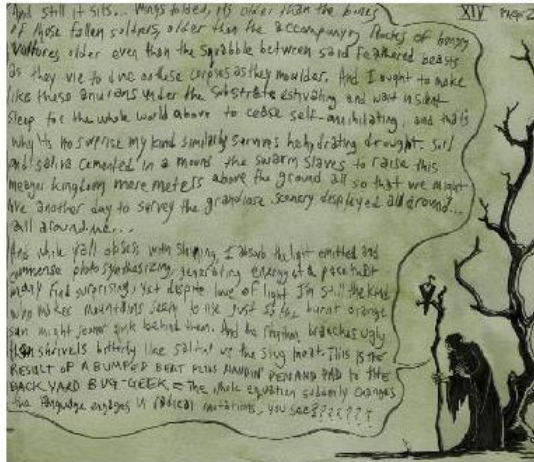 And still it sits... wings folded, it's older than the bones
XIV PAGE 2
of those fallen soldiers, older than the accompanying flocks of hungry
vultures older even than the squabble between said feathered beasts
as they vie to dine on these corpses as they moulder. And I ought to make
like these anurans under the substrate estivating and wait in silent
sleep for the whole world above to cease self-annihilating, and that's
why it's no surprise my kind similarly survives drought. Soil
and saliva cemented in a mound the swarm slaves to raise this
meager kingdom mere meters above the ground all so that we might
live another day to survey the grandiose scenery displayed all around...
all around me...
And while y'all obsess with shining, I absorb the light emitted and
commence photosynthesizing, generating energy at a pace that
many find surprising, yet despite love of light I'm still the kind
who makes mountains seem to rise just so the burnt orange
sun might sooner sink behind them. And the rhythm branches ugly
then shrivels bitterly like saltin' up the slug meat. This is the
RESULT OF A BUMPED BEAT PLUS HANDIN' PEN AND PAD TO THE
BACK YARD BUG-GEEK = The whole equation suddenly changes
the language engages in radical mutations, you see???????